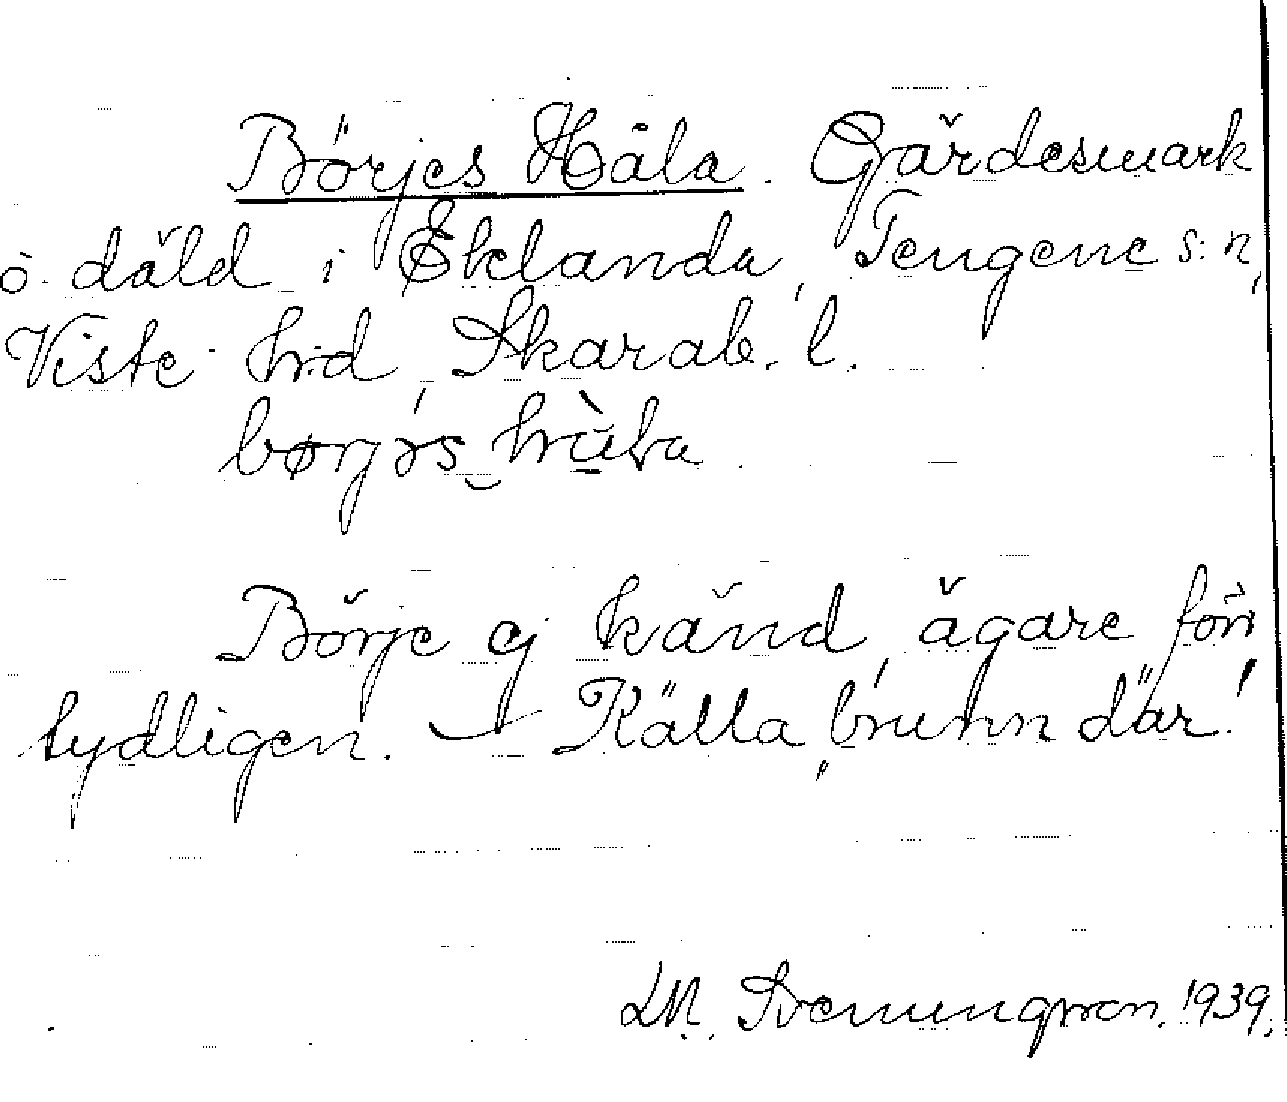 Börjes Håla. Gärdesmark
o. däld i Eklanda, Tengene s:n,
Viste hrd, Skarab. l.

Börje ej känd, ägare för
tydligen. – Källa, brunn där!
LM. Svenungsson. 1939.